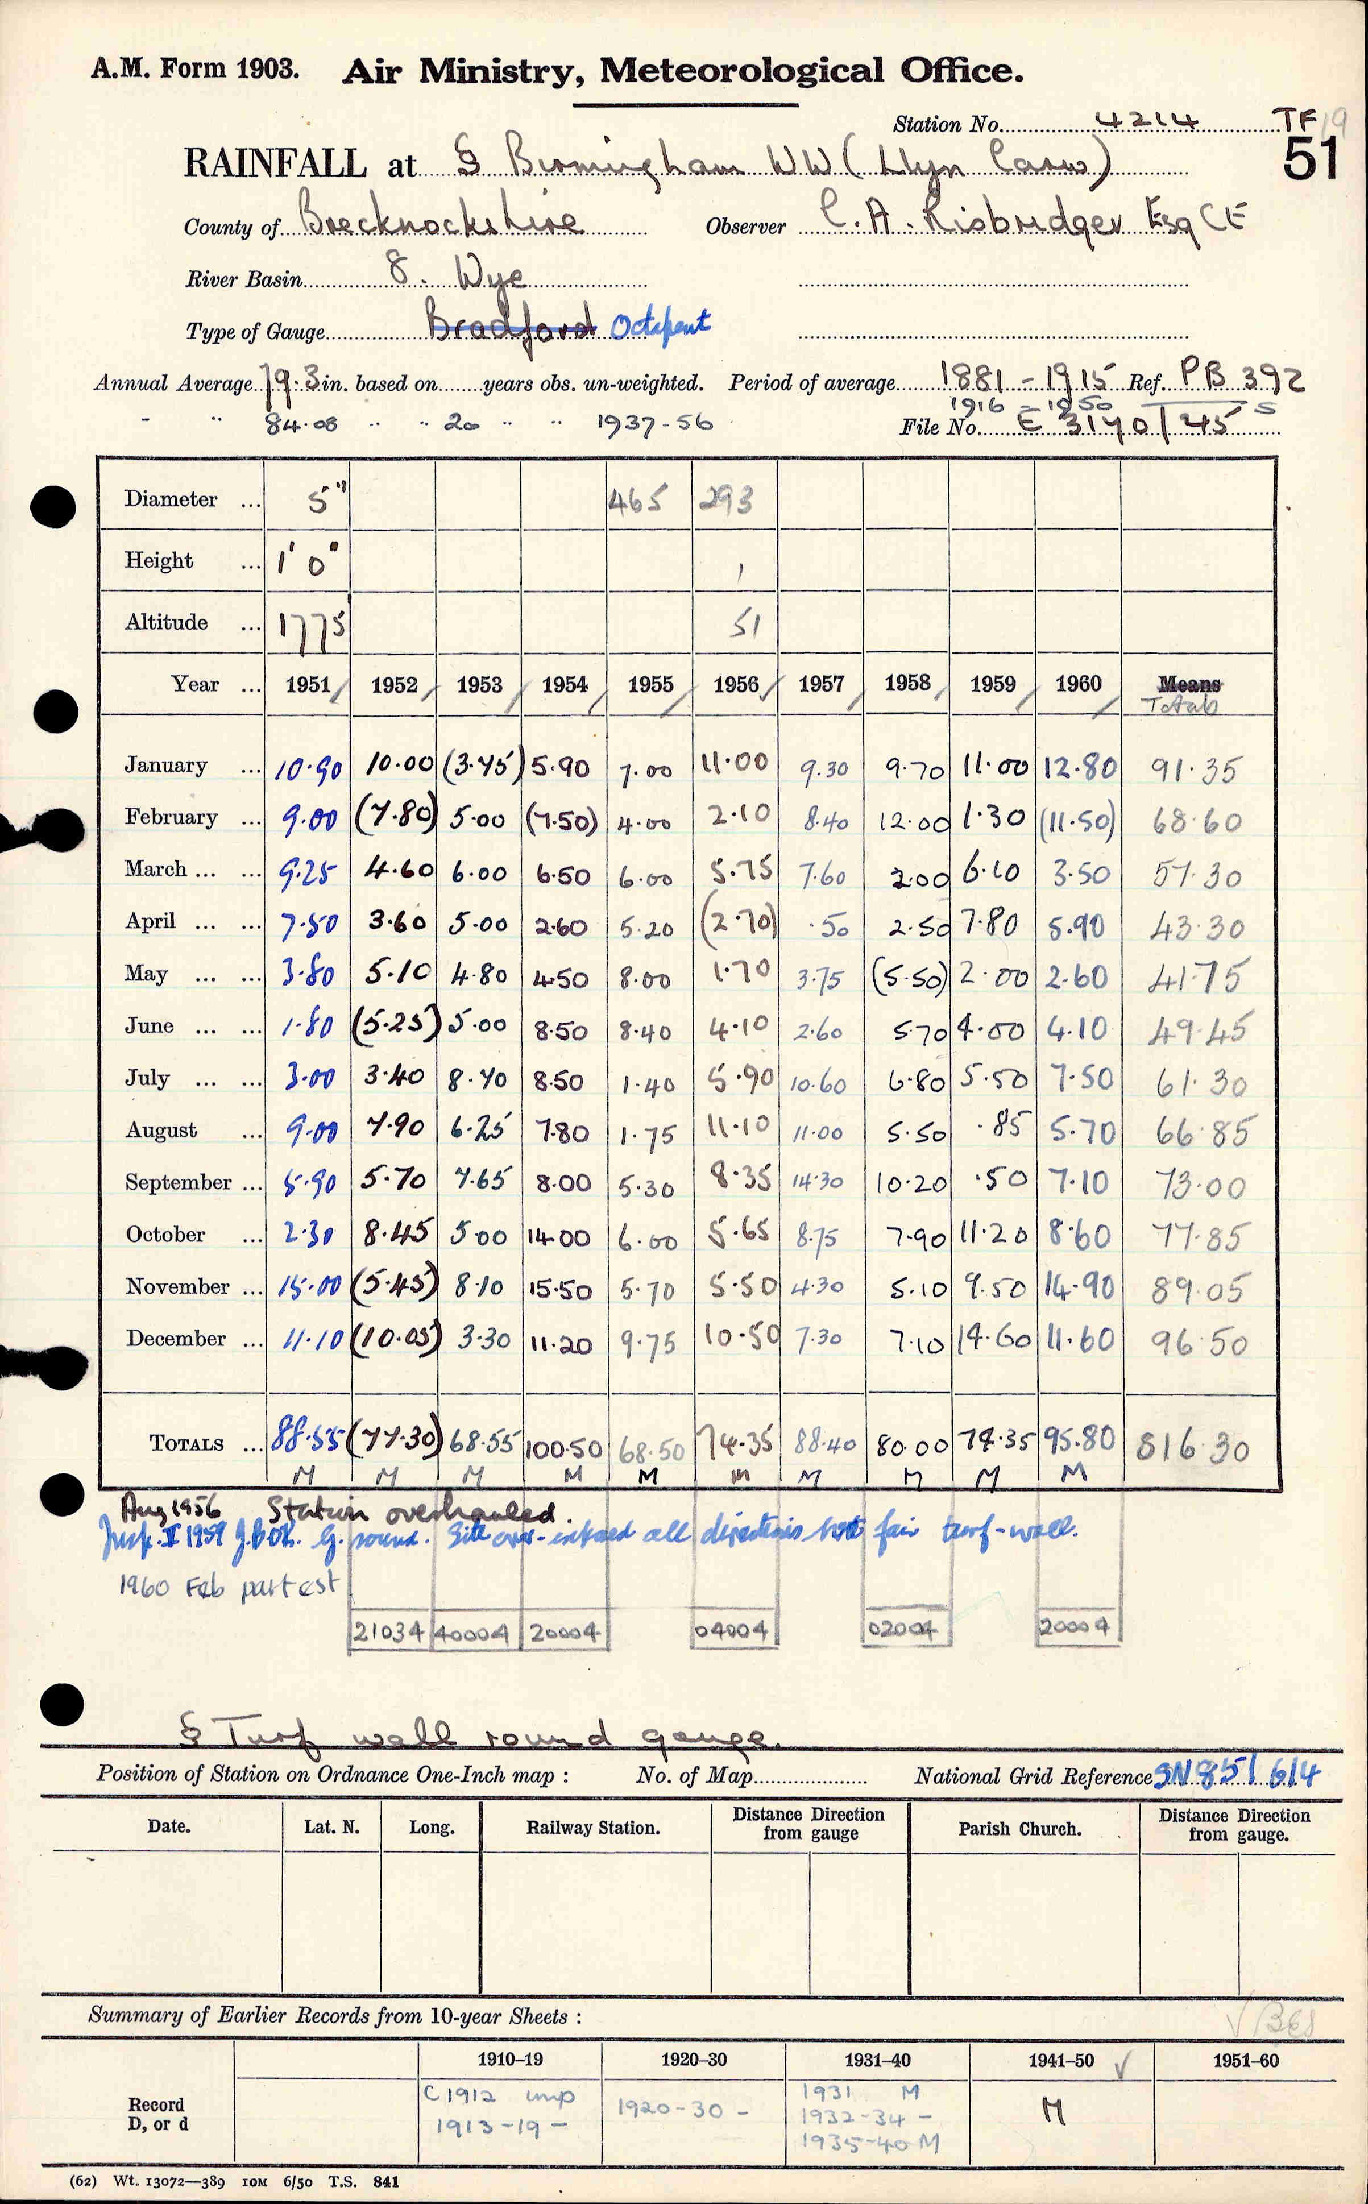 A.M. Form 1903. Air Ministry, Meteorological Office.
Station No. 4214 TF 19
RAINFALL at § Birmingham WW (Llyn Carw) 51
County of Brecknockshire Observer C. A. Risbridger Esq CE
River Basin 8. Wye
Type of Gauge Bradford Octapent
Annual Average 79.3 in. based on years obs. un-weighted. Period of average 1881-1915 Ref. PB 392
1916-1950 S
- " 84.08 " " 20 " " 1937-56 File No. E 3170/45
Diameter ... 5" 465 293
Height ... 1' 0" 1
Altitude ... 1775' 51
Year ... 1951 1952 1953 1954 1955 1956 1957 1958 1959 1960 Means
Totals
January ... 10.90 10.00 (3.45) 5.90 7.00 11.00 9.30 9.70 11.00 12.80 91.35
February ... 9.00 (7.80) 5.00 (7.50) 4.00 2.10 8.40 12.00 1.30 (11.50) 68.60
March ... ... 9.25 4.60 6.00 6.50 6.00 5.75 7.60 2.00 6.10 3.50 57.30
April ... ... 7.50 3.60 5.00 2.60 5.20 (2.70) .50 2.50 7.80 5.90 43.30
May ... ... 3.80 5.10 4.80 4.50 8.00 1.70 3.75 (5.50) 2.00 2.60 41.75
June ... ... 1.80 (5.25) 5.00 8.50 8.40 4.10 2.60 5.70 4.00 4.10 49.45
July ... ... 3.00 3.40 8.70 8.50 1.40 5.90 10.60 6.80 5.50 7.50 61.30
August ... 9.00 7.90 6.25 7.80 1.75 11.10 11.00 5.50 .85 5.70 66.85
September ... 5.90 5.70 7.65 8.00 5.30 8.35 14.30 10.20 .50 7.10 73.00
October ... 2.30 8.45 5.00 14.00 6.00 5.65 8.75 7.90 11.20 8.60 77.85
November ... 15.00 (5.45) 8.10 15.50 5.70 5.50 4.30 5.10 9.50 14.90 89.05
December ... 11.10 (10.05) 3.30 11.20 9.75 10.50 7.30 7.10 14.60 11.60 96.50
TOTALS ... 88.55 (77.30) 68.55 100.50 68.50 74.35 88.40 80.00 74.35 95.80 816.30
M M M M M M M M M M
Aug 1956 Station overhauled.
Insp. II 1959 G. sound. Site over-exposed all directions but fair turf-wall.
1960 Feb part est
21034 40004 20004 04004 02004 20004
§ Turf wall round gauge.
Position of Station on Ordnance One-Inch map : No. of Map National Grid Reference SN 851 614
Date. Lat. N. Long. Railway Station. Distance Direction from gauge Parish Church. Distance Direction from gauge.
Summary of Earlier Records from 10-year Sheets :
1910–19 1920–30 1931–40 1941–50 ✓ 1951–60
Record D, or d
C 1912 imp
1913-19 -
1920-30 -
1931 M
1932-34 -
1935-40 M
M
(62) Wt. 13072—389 10M 6/50 T.S. 841